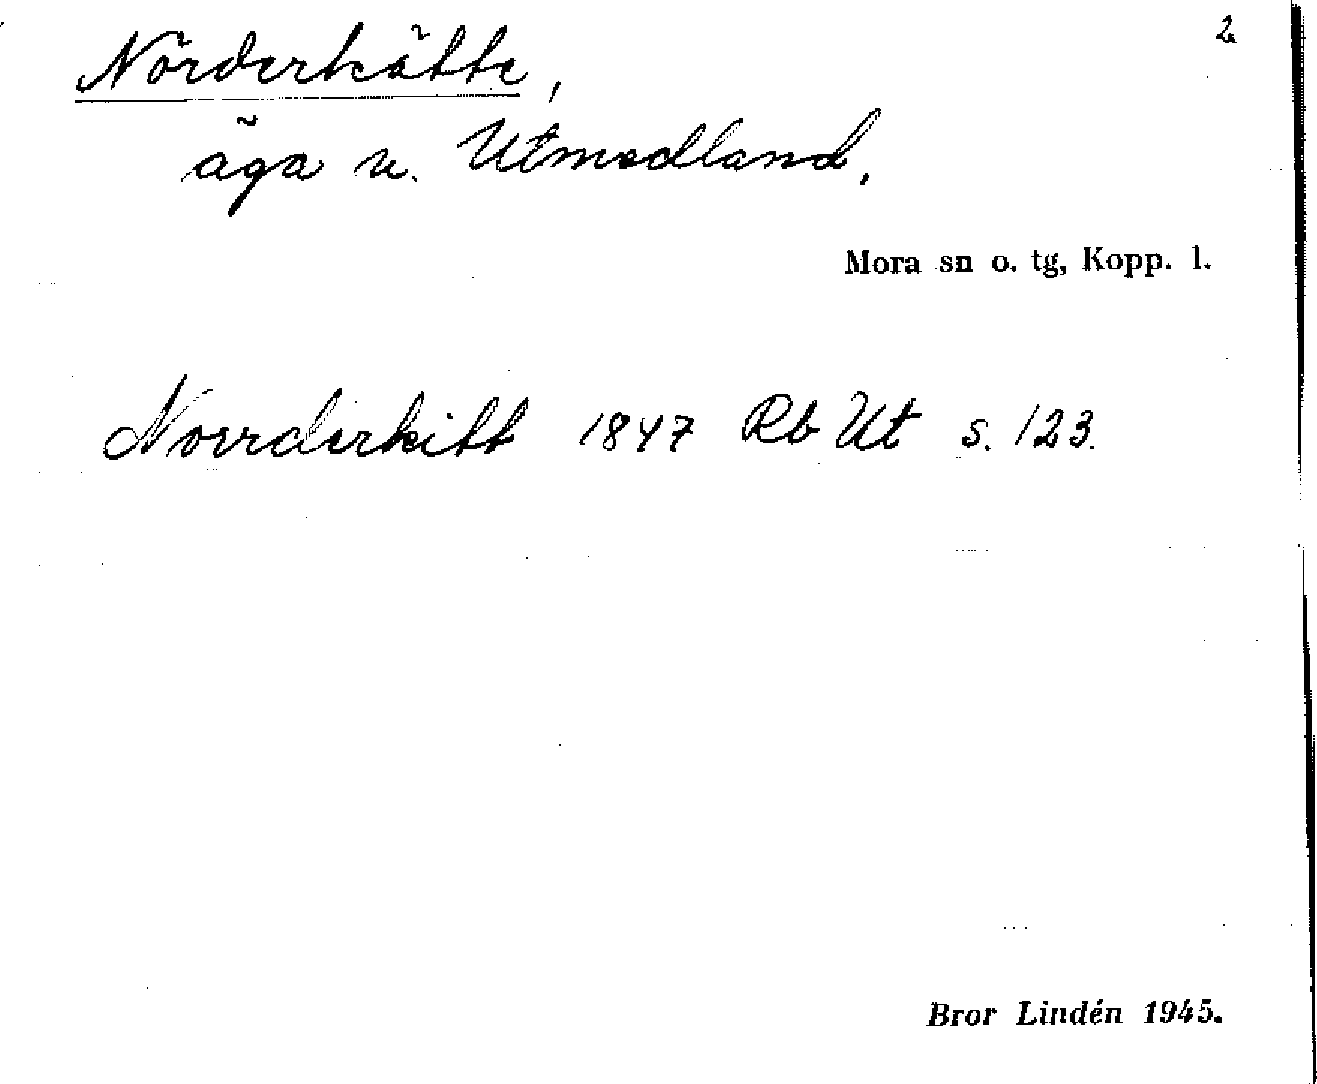 2
Nörderkätte,
äga u. Utmedland.
Mora sn o. tg, Kopp. l.
Norrderkitt 1847 Rb Ut s. 123.
Bror Lindén 1945.